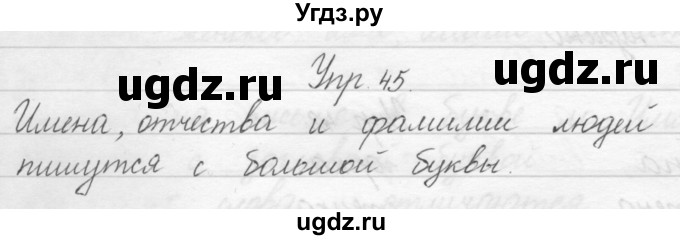 Угдз.ру
Упр. 45.
ugdz.ru
ugdz.ru
Имена, отчества и фамилии людей
пишутся с большой буквы.
ugdz.ru